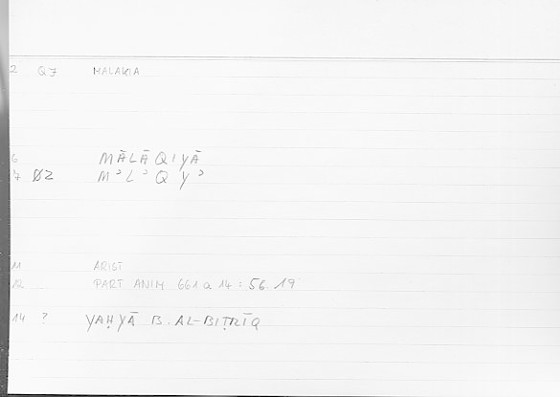 2 QZ MALAKIA
6 MĀLĀQIYĀ
7 ØZ MʾLʾQYʾ
11 ARIST
12 PART ANIM 661a14 : 56.19
14 ? YAḤYĀ B. AL-BIṬRĪQ